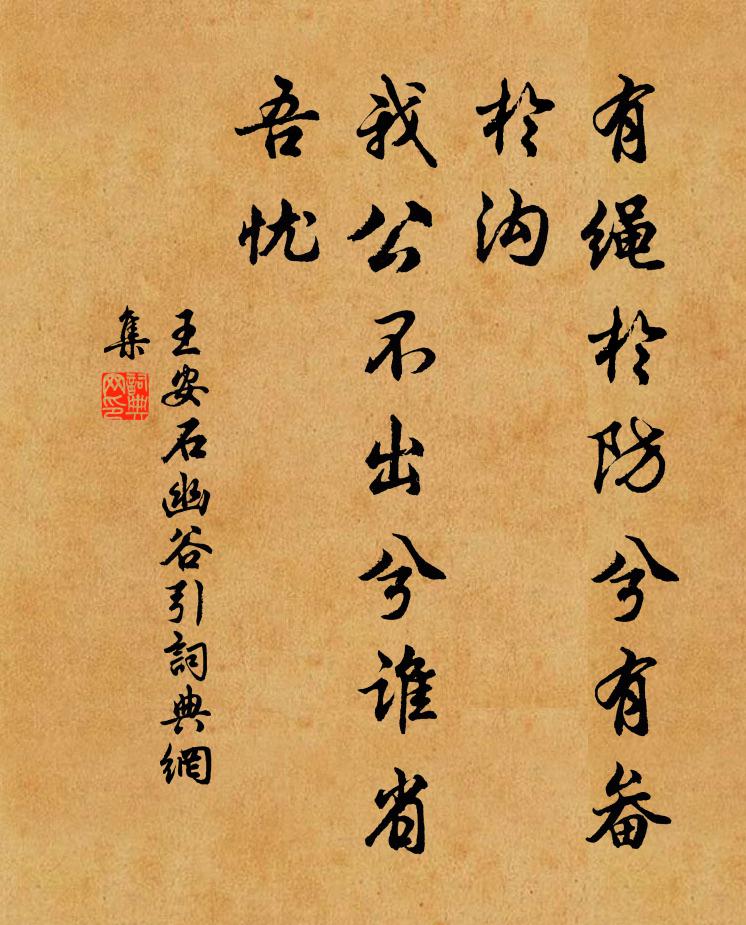 有绳於防兮有畚
於沟
我公不出兮谁省
吾忧
王安石幽谷引詞典網
集
詞典
网印